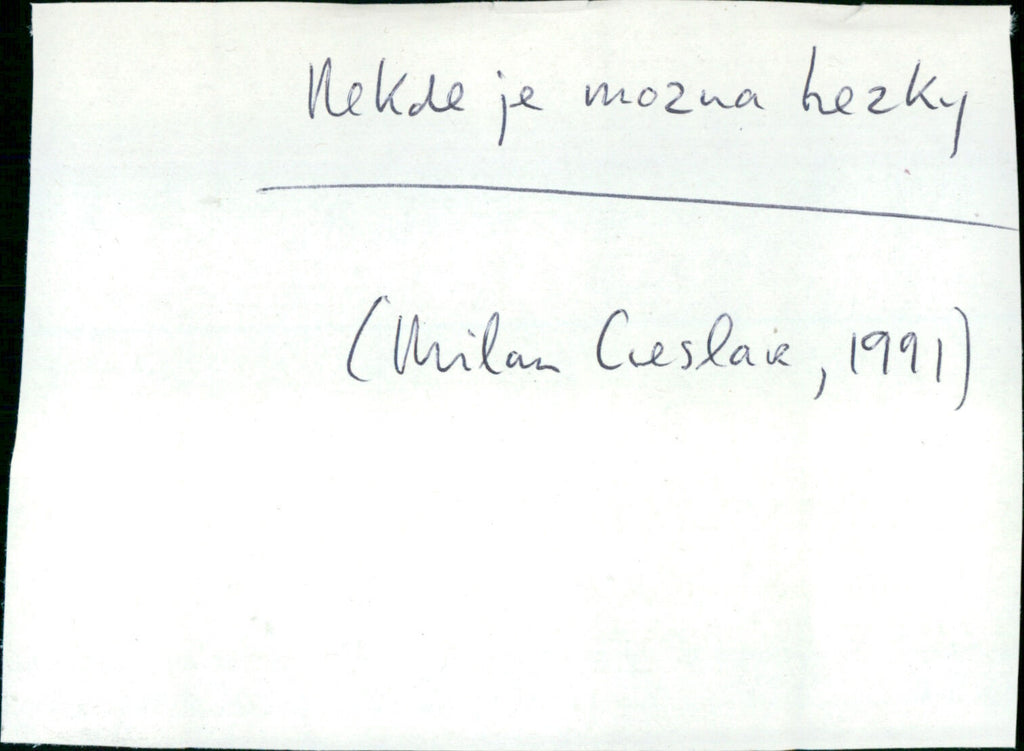 Nekde je mozna hezky
(Milan Cieslar, 1991)